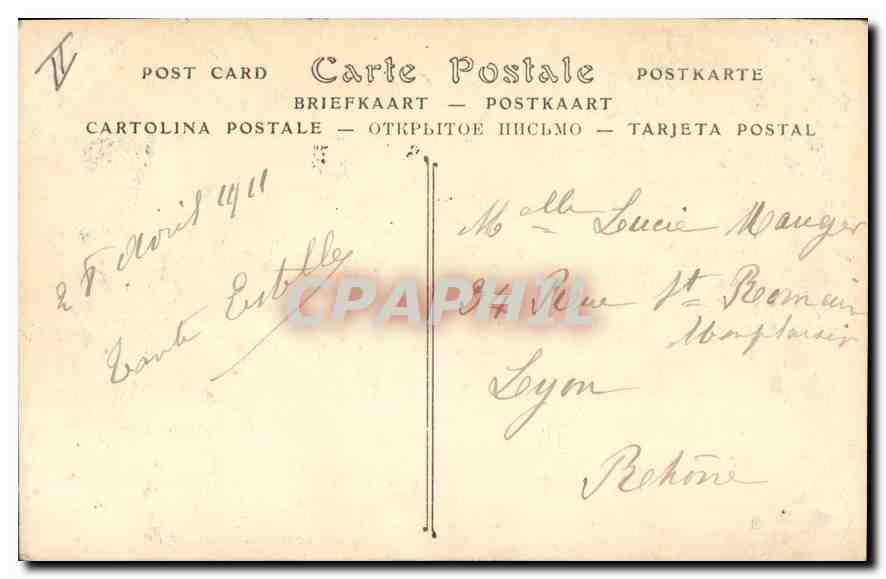 II
POST CARD Carte Postale POSTKARTE
BRIEFKAART — POSTKAART
CARTOLINA POSTALE — ОТКРЫТОЕ ПИСЬМО — TARJETA POSTAL
28 Avril 1911
Tante Estelle
Melle Lucie Mauger
34 Rue St Romain
Monplaisir
Lyon
Rhône
CPAPHIL